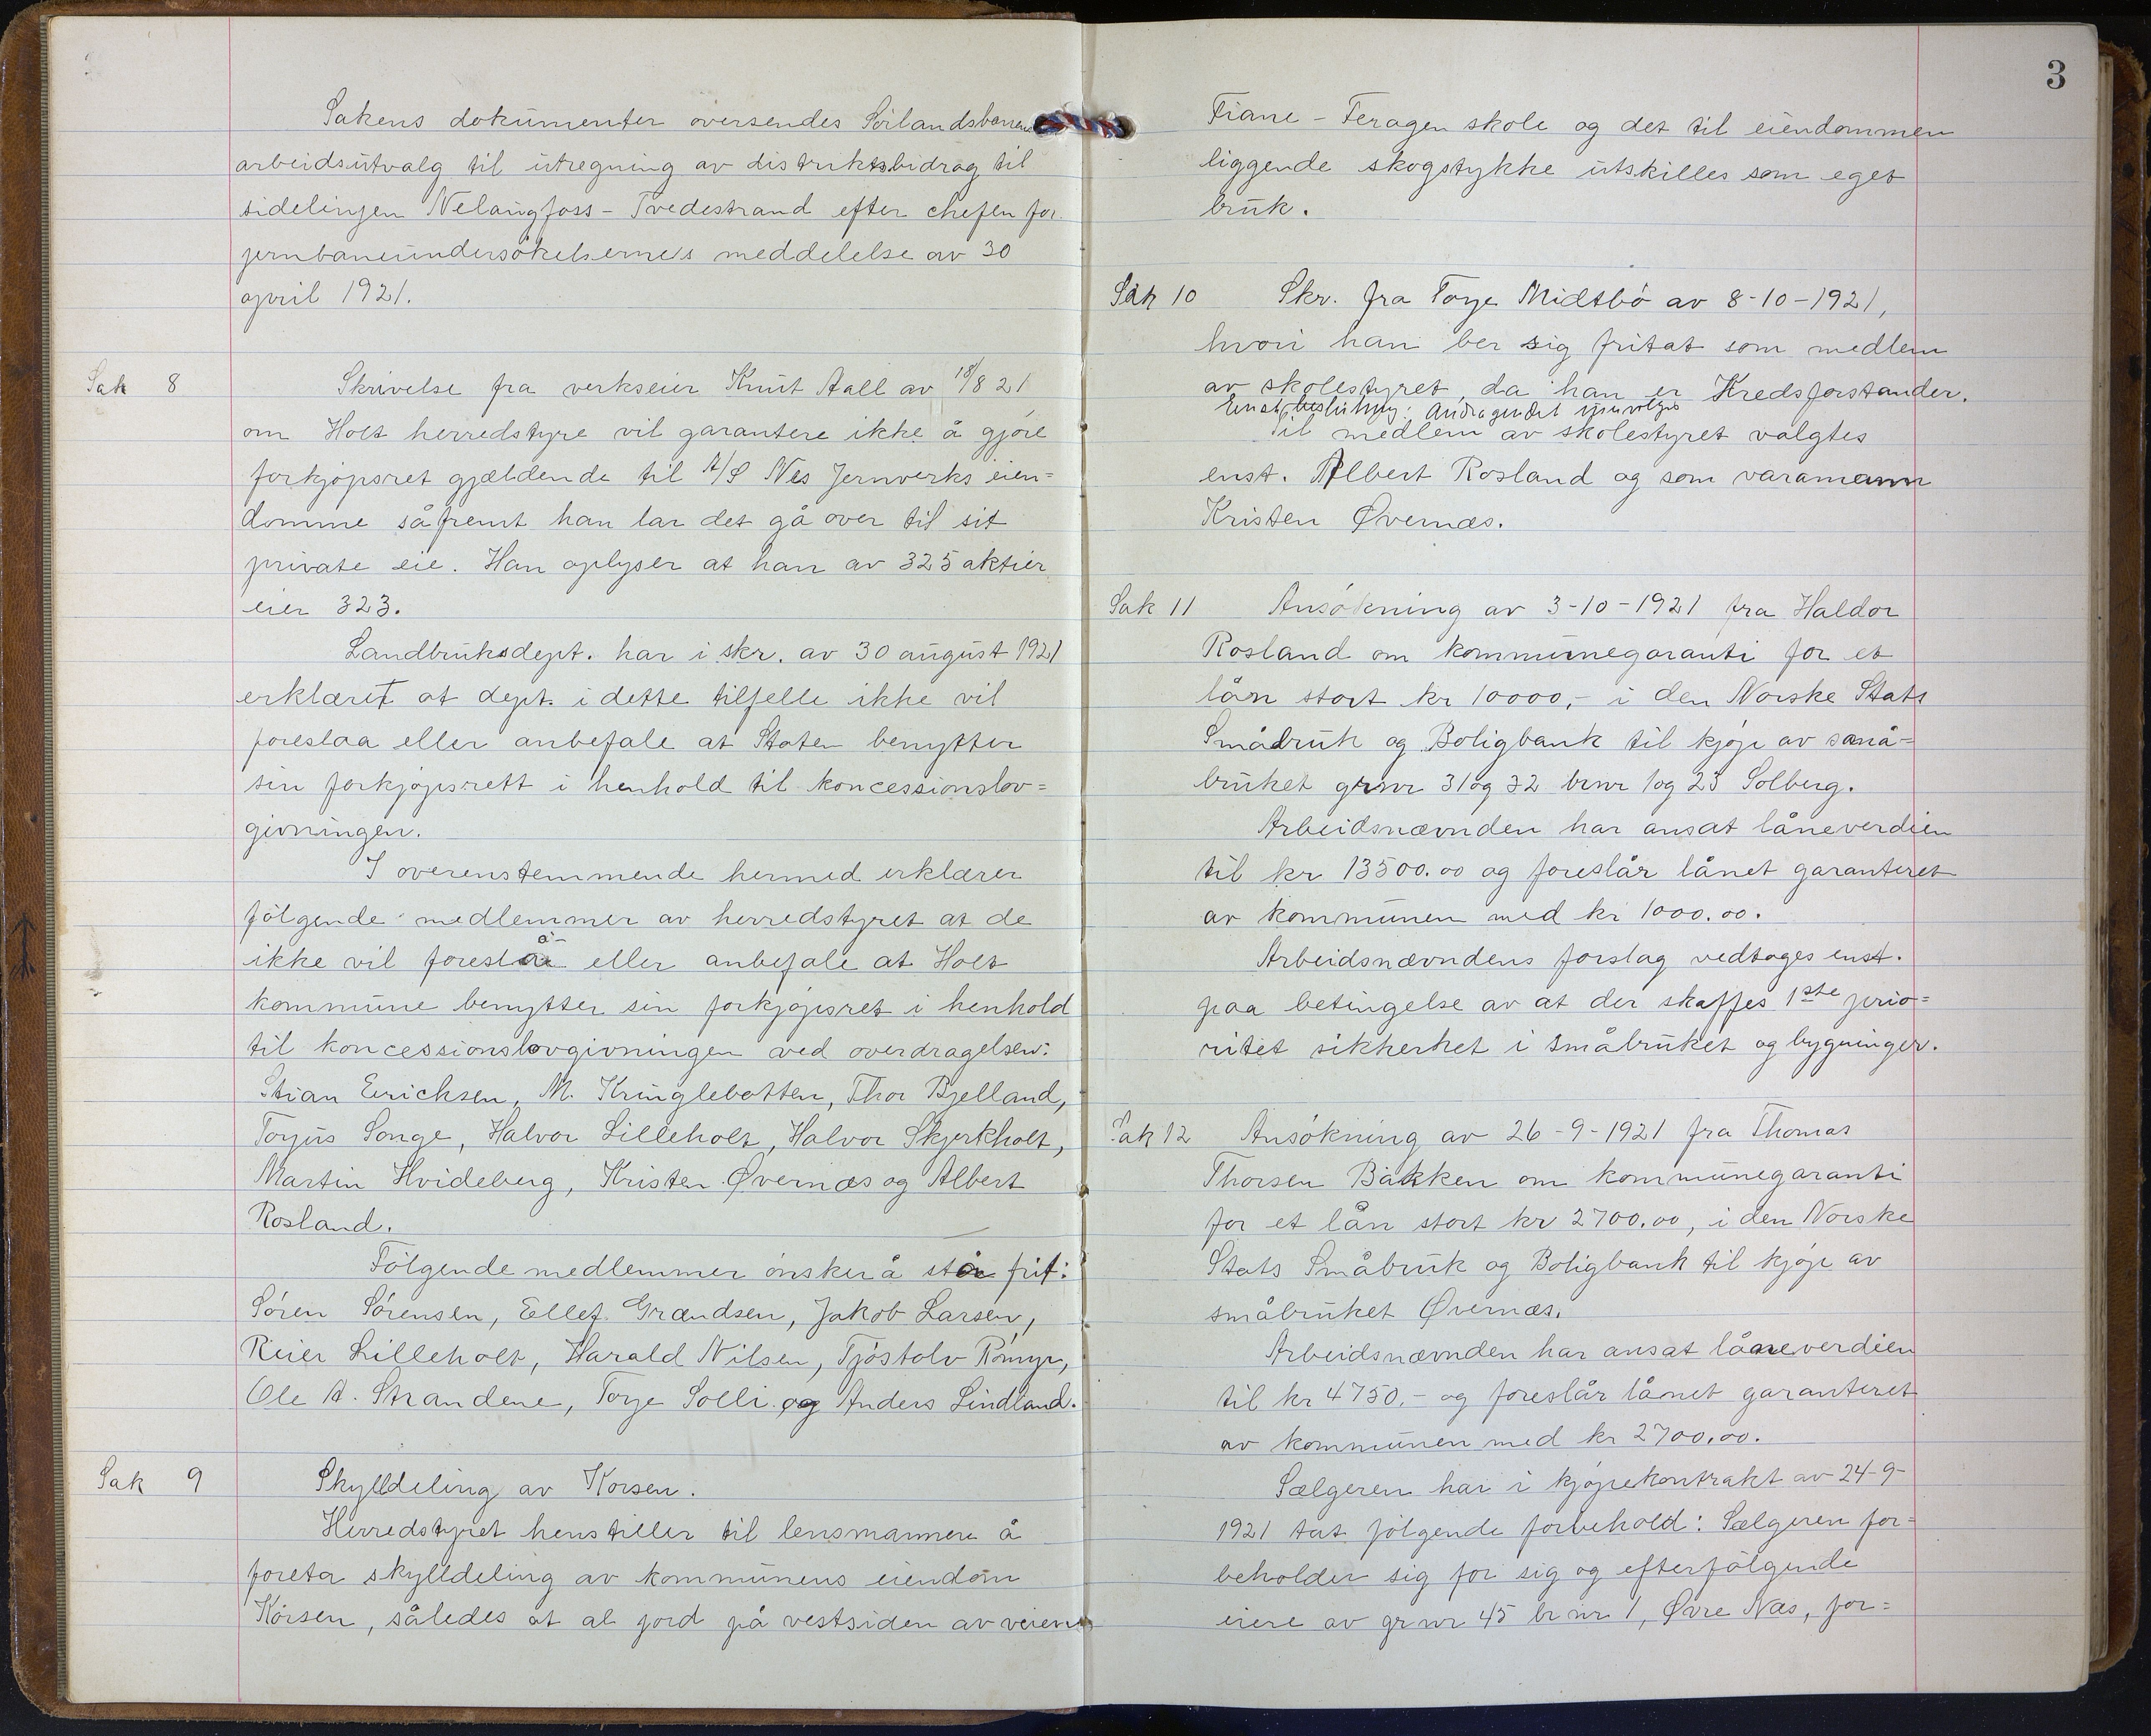 Sakens dokumenter oversendes Sörlandsbanens
arbeidsutvalg til utregning av distriktsbidrag til
sidelinjen Nelaugfoss - Tvedestrand efter chefen for
jernbaneundersökelsernes meddelelse av 30
april 1921.
Sak 8 Skrivelse fra verkseier Knut Aall av 18/8 21
om Holt herredstyre vil garantere ikke å gjöre
forkjöpsret gjældende til A/S Nes Jernverks eien=
domme såfremt han lar det gå over til sit
private eie. Han oplyser at han av 325 aktier
eier 323.
Landbruksdept. har i skr. av 30 august 1921
erklæret at dept. i dette tilfelle ikke vil
foreslaa eller anbefale at Staten benytter
sin forkjöpsrett i henhold til koncessionslov=
givningen.
I overenstemmende hermed erklærer
fölgende medlemmer av herredstyret at de
ikke vil foreslå eller anbefale at Holt
kommune benytter sin forkjöpsret i henhold
til koncessionslovgivningen ved overdragelsen:
Stian Ericksen, M. Kringlebotten, Thor Bjelland,
Torjus Songe, Halvor Lilleholt, Halvor Skjerkholt,
Martin Hvideberg, Kristen Øvernæs og Albert
Rosland.
Fölgende medlemmer önsker å stå frit:
Sören Sörensen, Ellef Grændsen, Jakob Larsen,
Reier Lilleholt, Harald Nilsen, Tjöstolv Römyr,
Ole A. Strandene, Torje Solli og Anders Lindland.
Sak 9 Skylldeling av Korsen.
Herredstyret henstiller til lensmannen å
foreta skylldeling av kommunens eiendom
Korsen, således at al jord på vestsiden av veien
3
Fiane - Feragen skole og det til eiendommen
liggende skogstykke utskilles som eget
bruk.
Sak 10 Skr. fra Torje Midtbö av 8-10-1921,
hvori han ber sig fritat som medlem
av skolestyret, da han er Kredsforstander.
Enst. beslutning: Andragendet
Til medlem av skolestyret valgtes
enst. Albert Rosland og som varamann
Kristen Øvernæs.
Sak 11 Ansökning av 3-10-1921 fra Haldor
Rosland om kommunegaranti for et
lån stort kr 10000,- i den Norske Stats
Småbruk og Boligbank til kjöp av små=
bruket grnr 31 og 32 brnr 1 og 23 Solberg.
Arbeidsnævnden har ansat låneverdien
til kr 13500.00 og foreslår lånet garanteret
av kommunen med kr 1000.00.
Arbeidsnævndens forslag vedtages enst.
paa betingelse av at der skaffes 1ste prio=
ritet sikkerhet i småbruket og bygninger.
Sak 12 Ansökning av 26-9-1921 fra Thomas
Thorsen Bakken om kommunegaranti
for et lån stort kr 2700.00, i den Norske
Stats Småbruk og Boligbank til kjöp av
småbruket Øvernæs.
Arbeidsnævnden har ansat låneverdien
til kr 4750.- og foreslår lånet garanteret
av kommunen med kr 2700.00.
Sælgeren har i kjöpekontrakt av 24-9-
1921 tat fölgende forbehold: Sælgeren for=
beholder sig for sig og efterfölgende
eiere av gr nr 45 br nr 1, Øvre Næs, for=